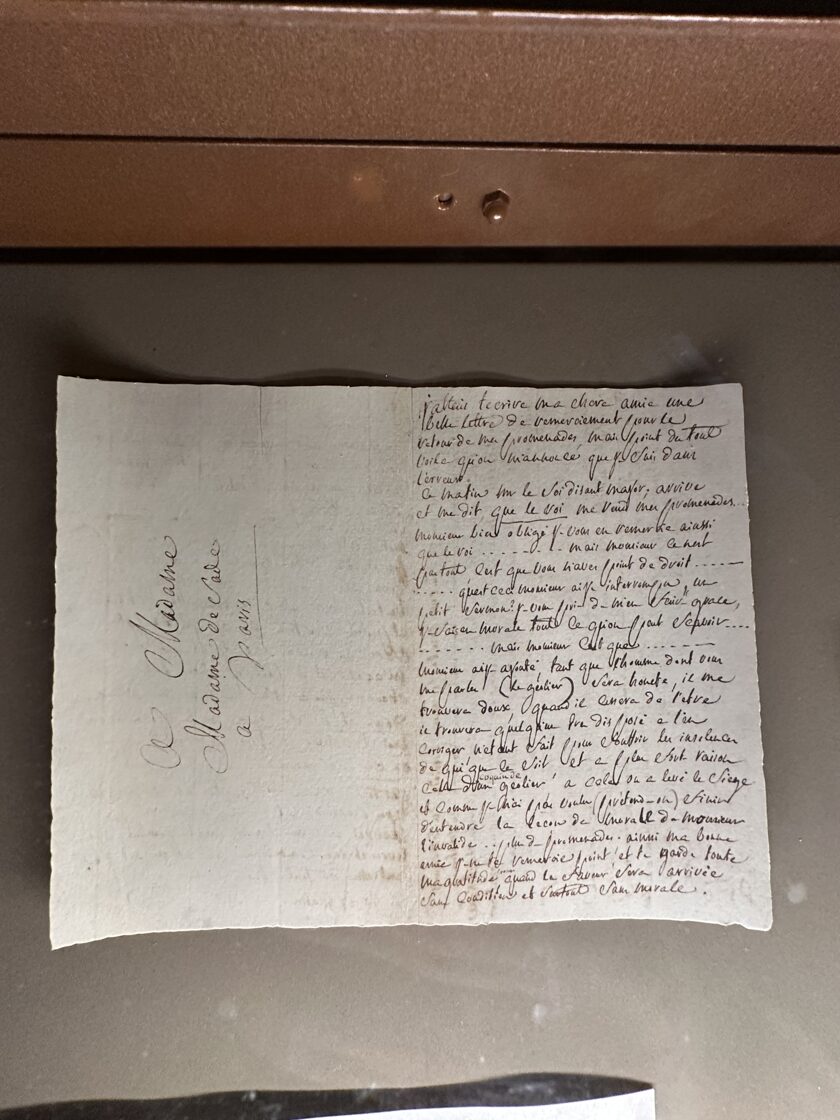 A Madame
Madame de Sade
a paris
j'allais tecrire ma chere amie une
belle lettre de remerciement pour le
retour de mes promenades, mais point du tout
voila qu'on m'annonce que je suis dans
l'erreur.
Ce matin mr le soi disant major, arrive
et me dit que le roi me rend mes promenades...
monsieur bien obligé je vous en remercie ainssi
que le roi . . . . . . . . mais monsieur ce nest
pas tout cest que vous navez point de droit . . . . . .
. . . . . quest ceci monsieur ai je interrompu, un
petit sermon? je vous prie de men faire grace,
je sais en morale tout ce qu'on peut sçavoir . . . .
. . . . . . . . mais monsieur cest que . . . . . . . .
monsieur ai je ajouté tant que l'homme dont vous
me parlés (le geolier) sera honete, il me
trouvera doux quand il cessera de l'etre
il trouvera quelqu'un tres disposé a l'en
coriger n'etant fait pour souffrir les insolences
de qui que ce soit et a plus forte raison
celle d'un coquin de geolier a cela on a levé le siege
et comme je n'ai pas voulu (pretend-on) finir
d'entendre la leçon de morale de monsieur
l'invalide . . plus de promenades. ainssi ma bonne
amie je ne te remercie point, et te garde toute
ma gratitude quand la faveur sera arrivée
sans condition et surtout sans morale.